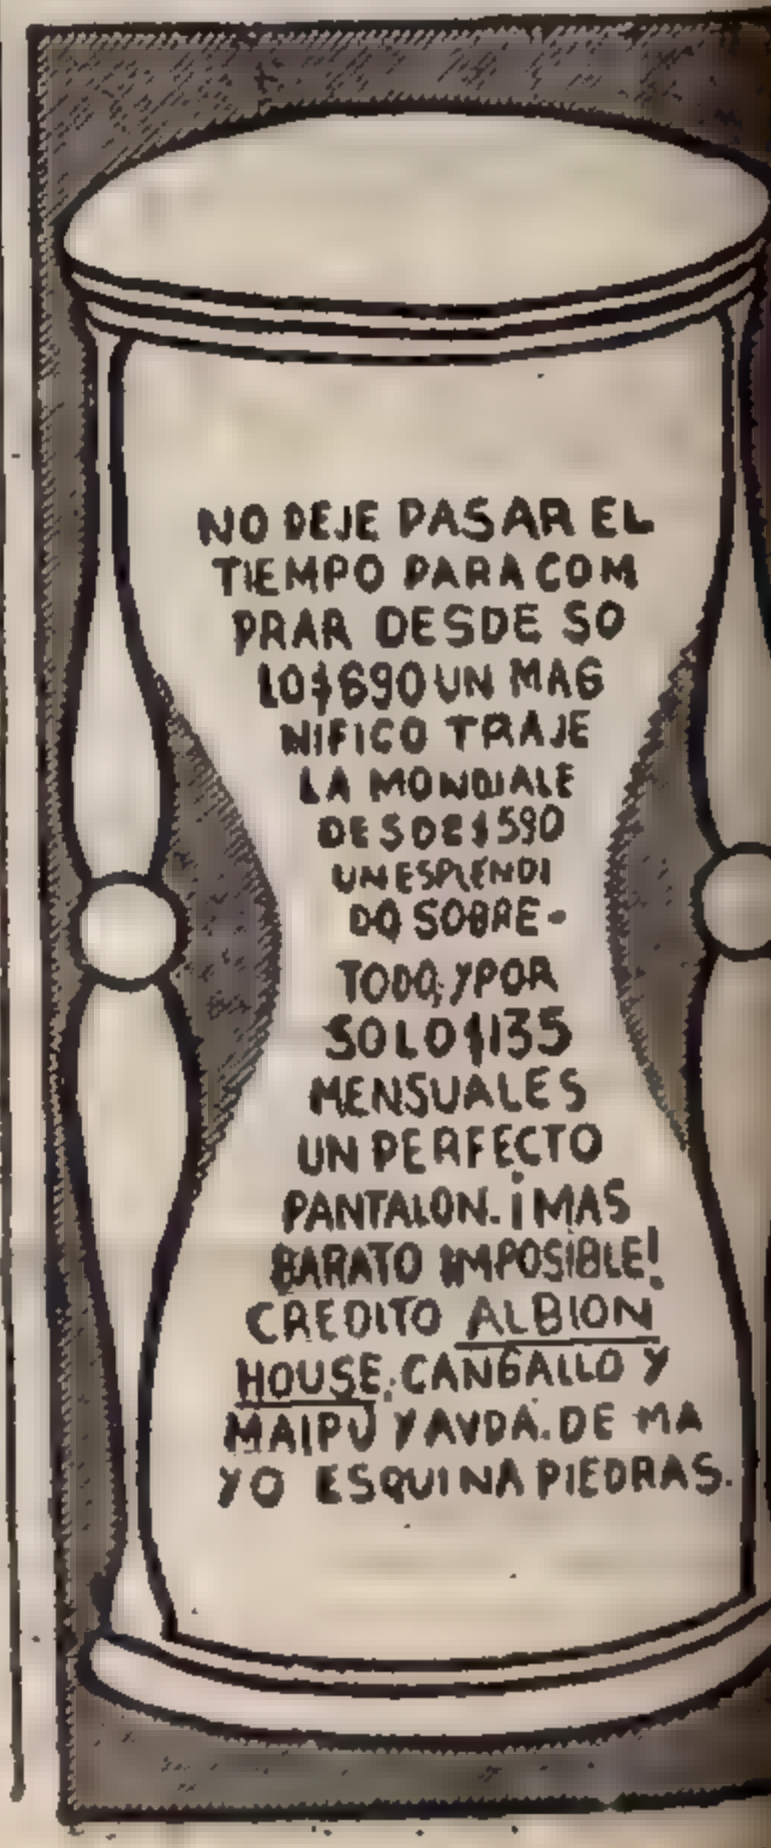 NO DEJE PASAR EL
TIEMPO PARA COM
PRAR DESDE SO
LO $690 UN MAG
NIFICO TRAJE
LA MONDIALE
DESDE $590
UN ESPLENDI
DO SOBRE-
TODO, Y POR
SOLO $135
MENSUALES
UN PERFECTO
PANTALON. ¡MAS
BARATO IMPOSIBLE!
CREDITO ALBION
HOUSE. CANGALLO Y
MAIPU Y AVDA. DE MA
YO ESQUINA PIEDRAS.